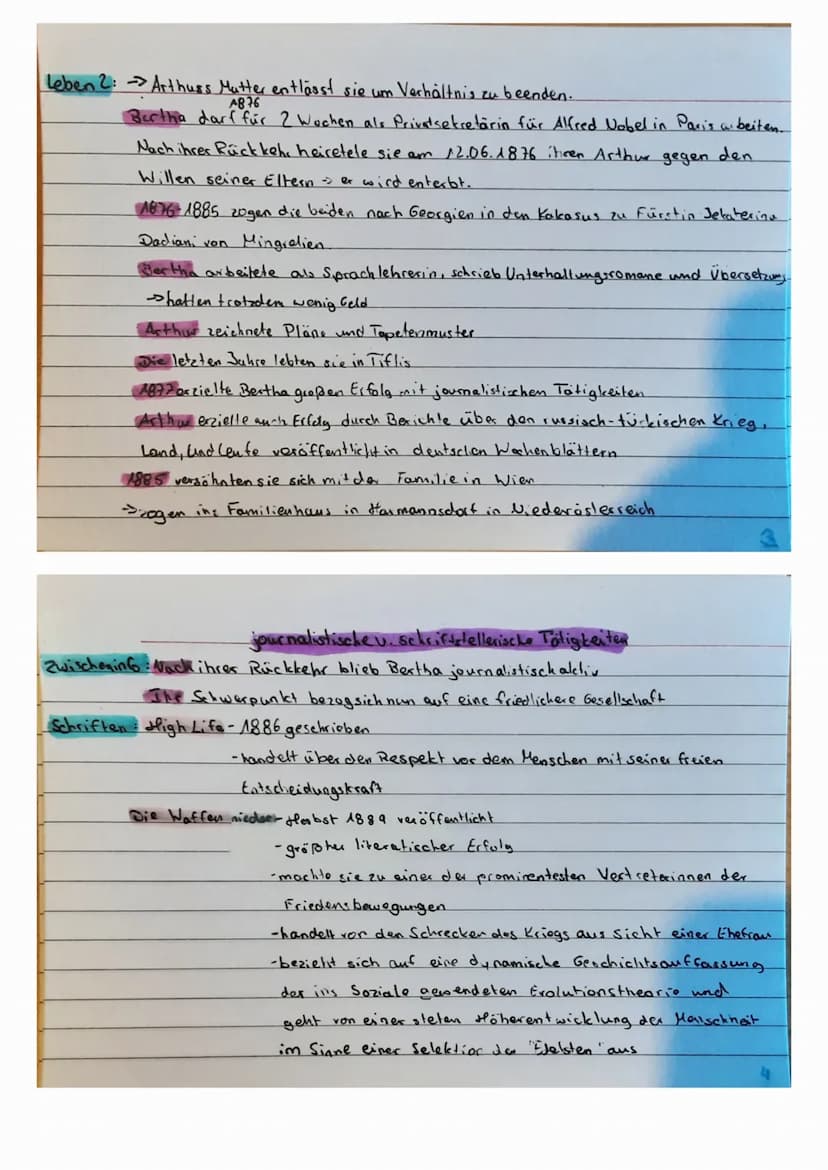 Leben 2: → Arthurs Mutter entlässt sie um Verhältnis zu beenden.
1876
Bertha darf für 2 Wochen als Privatsekretärin für Alfred Nobel in Paris arbeiten.
Nach ihrer Rückkehr heiretete sie am 12.06.1876 ihren Arthur gegen den
Willen seiner Eltern → er wird enterbt.
1876-1885 zogen die beiden nach Georgien in den Kakasus zu Fürstin Jekaterina
Dadiani von Mingrelien
Bertha arbeitete als Sprachlehrerin, schrieb Unterhaltungsromane und Übersetzung
→ hatten trotzdem wenig Geld
Arthur zeichnete Pläne und Tapetenmuster
Die letzten Jahre lebten sie in Tiflis
1877 erzielte Bertha großen Erfolg mit journalistischen Tätigkeiten
Arthur erzielte auch Erfolg durch Berichte über den russisch-türkischen Krieg,
Land, und Leute veröffentlicht in deutschen Wochenblättern
1885 versöhnten sie sich mit der Familie in Wien
→ zogen ins Familienhaus in Harmannsdorf in Niederösterreich
3
journalistische u. schriftstellerische Tätigkeiten
Zwischeninfo: Nach ihrer Rückkehr blieb Bertha journalistisch aktiv
Ihr Schwerpunkt bezog sich nun auf eine friedlichere Gesellschaft
Schriften: High Life - 1886 geschrieben
- handelt über den Respekt vor dem Menschen mit seiner freien
Entscheidungskraft
Die Waffen nieder - Herbst 1889 veröffentlicht
- größter literarischer Erfolg
- machte sie zu einer der prominentesten Vertreterinnen der
Friedensbewegungen
- handelt von den Schrecken des Kriegs aus Sicht einer Ehefrau
- bezieht sich auf eine dynamische Geschichtsauffassung
der ins Soziale gewendeten Evolutionstheorie und
geht von einer steten Höherentwicklung der Menschheit
im Sinne einer Selektion der "Edelsten" aus
4